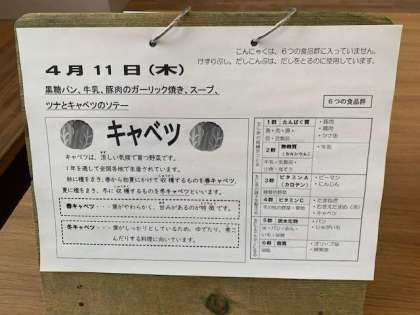 こんにゃくは、6つの食品群に入っていません。
けずりぶし、だしこんぶは、だしをとるのに使用しています。
4月11日(木)
黒糖パン、牛乳、豚肉のガーリック焼き、スープ、
ツナとキャベツのソテー
6つの食品群
キャベツ
キャベツは、涼しい気候で育つ野菜です。
1年を通して全国各地で生産されています。
秋に種をまき、春から初夏にかけて収穫するものを春キャベツ、
夏に種をまき、冬に収穫するものを冬キャベツといいます。
春キャベツ…葉がやわらかく、甘みがあるのが特徴です。
冬キャベツ…葉がしっかりとしているため、ゆでたり、煮こ
んだりする料理に向いています。
1群 たんぱく質
魚・肉・卵・
豆・豆製品
・豚肉
・鶏肉
・ツナ缶
2群 無機質
(カルシウム)
牛乳・乳製品・
・牛乳
3群 ビタミンA
(カロテン)
緑黄色野菜
・ピーマン
・にんじん
4群 ビタミンC
その他の野菜・果物
・たまねぎ
・キャベツ
5群 炭水化物
米・パン・めん・
いも・砂糖
・パン
・じゃがいも
6群 脂質
油脂
・オリーブ油